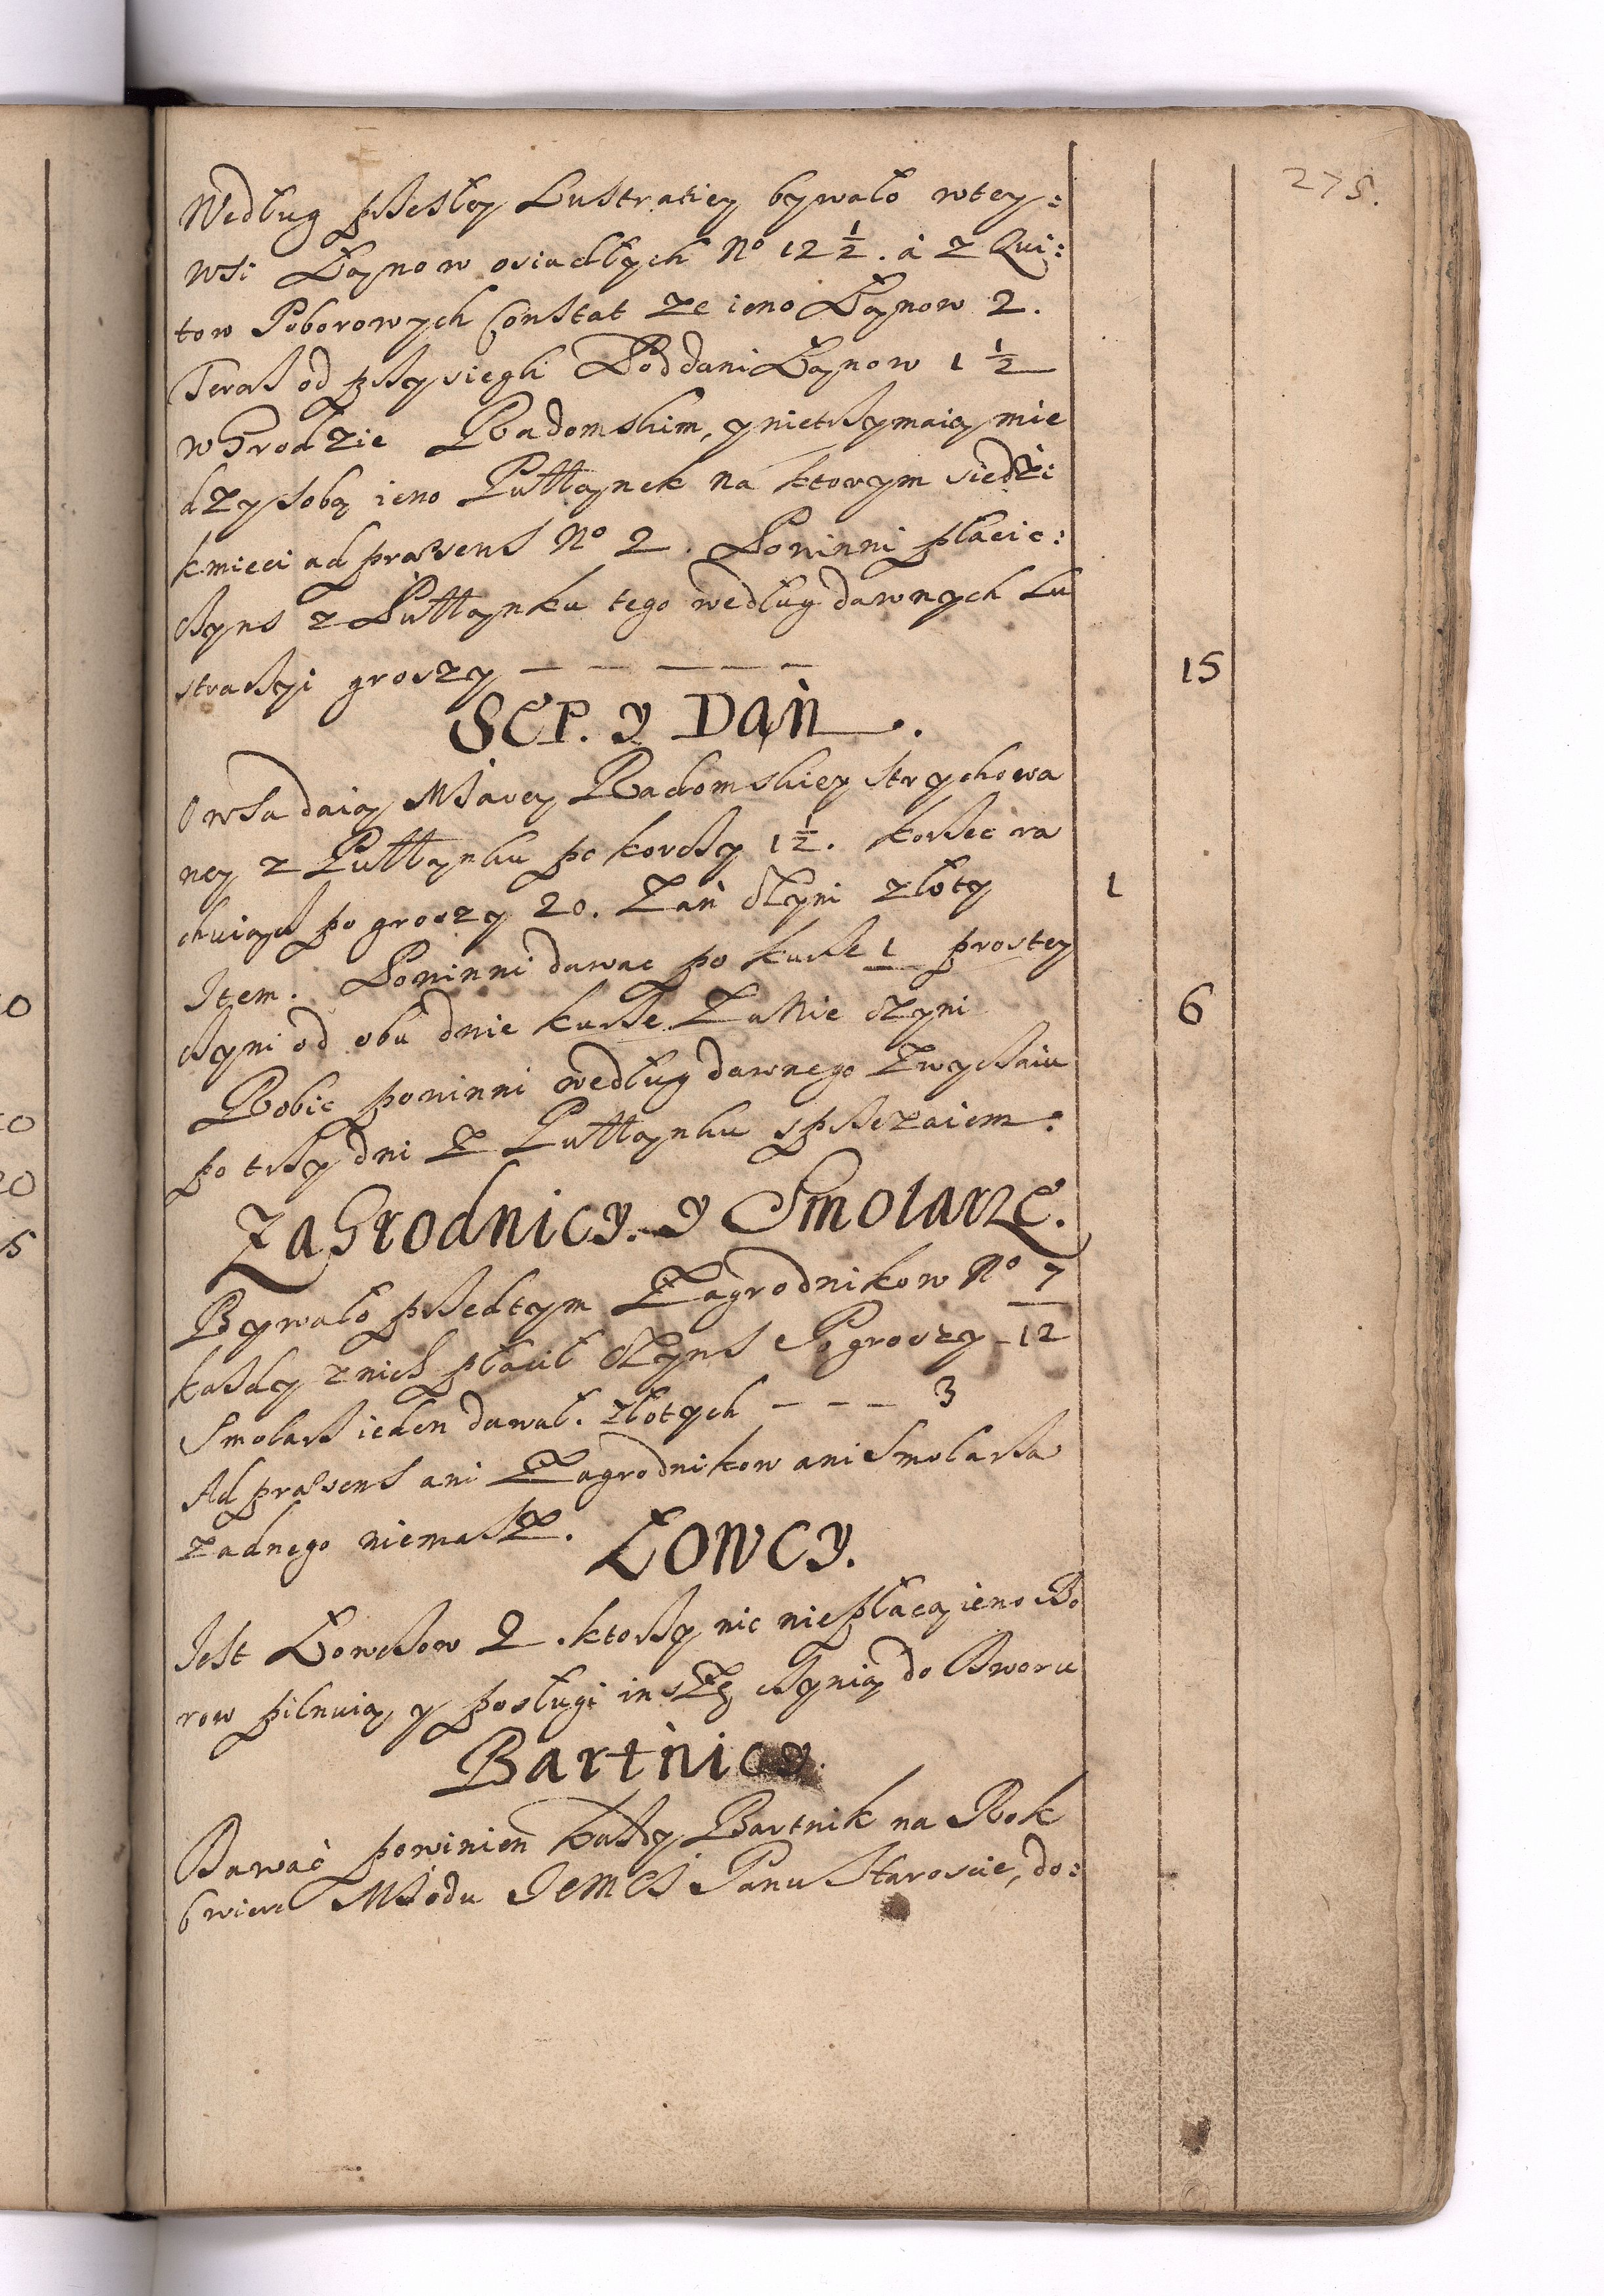 275.
Według przeszłey Lustratiey bywało w tey:
wsi Łanow osiadłych No 12 1/2. á z Qui:
tow Poborowych Constat ze ieno Łanow 2.
Teraz od przysiegli Poddani Łanow 1 1/2
w Grodzie Radomskim, y nietrzymaią mie
dzy sobą ieno Pułłanek na ktorym siedzi:
kmieci ad præsens No 2. Powinni płacic:
czyns z Pułłanku tego według dawnych Lu
straczyi groszy — — — — — 15
SEP. y Dań.
Owsa daią Miarey Radomskiey strychowa
ney z Pułłanku po korczy 1 1/2. korzec ra
chuiąc po groszy 20. Zań czyni złoty 1
Item. Powinni dawac po kurze 1 prostey
czyni od obu dwie kurze Za Nie czyni 6
Robic powinni według dawnego Zwyczaiu
po trzy dni z Pułłanku sprzezaiem.
Zagrodnicy y Smolarze.
Bywało przedtym Zagrodnikow No 7
kazdy z nich płacił Czyns Po groszy - 12
Smolarz ieden dawał. złotych — — — 3
Ad præsens ani Zagrodnikow ani Smolarza
zadnego niemasz.
Łowcy.
Iest Łowczow 2. ktorzy nic niepłacą ieno Bo
row pilnuią, y posługi insze czynią do Dworu
Bartnicy.
Dawać powinien kazdy Bartnik na Rok
6 wierc Miodu Iemci Panu Staroscie, do: